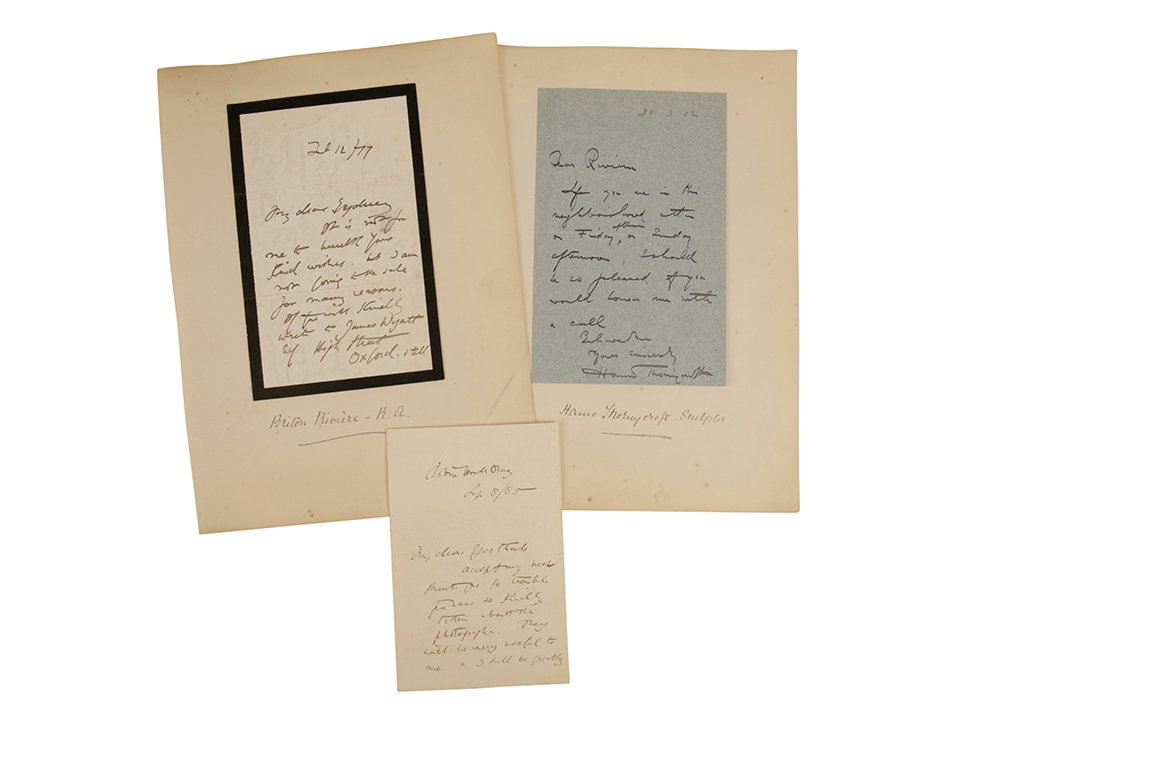 Feb 12/77
My dear Sydney
It is not for
me to
kind wishes. but I am
not going to the sale
for many reasons.
If you will kindly
write to James Wyatt
Esq High Street
Oxford. still
Briton Rivière - R.A.
30 3 12
Dear Riviere
If you are in this
neighbourhood
on Friday, or Sunday
afternoon, I should
be so pleased if you
would honour me with
a call
Believe me
Yours sincerely
Hamo Thornycroft
Hamo Thornycroft - Sculptor
8/85
My dear Gertrude
accept my best
thanks for the trouble
you have so kindly
taken about the
photographs. They
will be very useful to
me & I shall be greatly